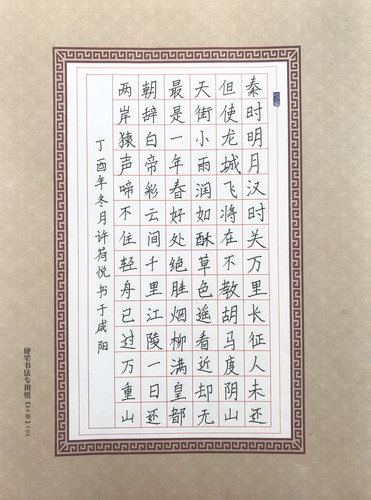 秦时明月汉时关万里长征人未还
但使龙城飞将在不教胡马度阴山
天街小雨润如酥草色遥看近却无
最是一年春好处绝胜烟柳满皇都
朝辞白帝彩云间千里江陵一日还
两岸猿声啼不住轻舟已过万重山
丁酉年冬月许荷悦书于咸阳
硬笔书法专用纸【84格】